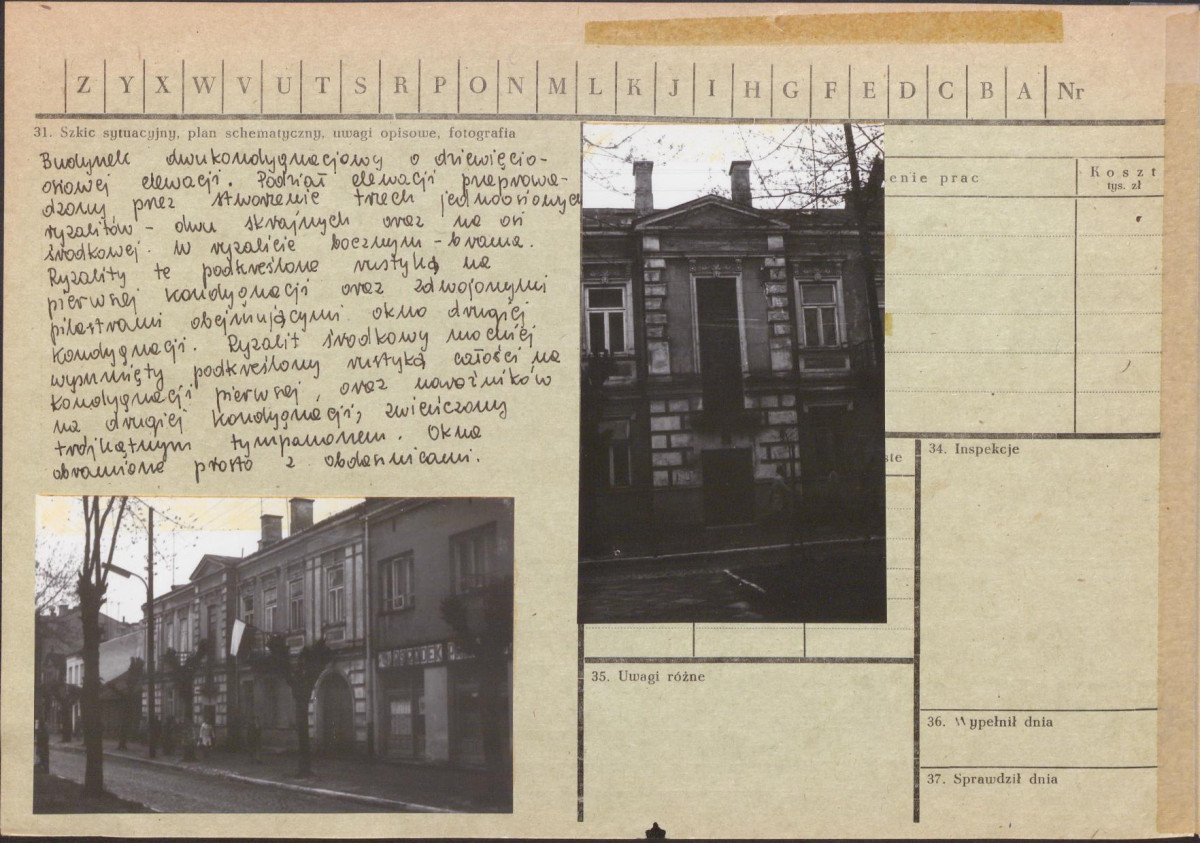 Z Y X W V U T S R P O N M L K J I H G F E D C B A Nr
31. Szkic sytuacyjny, plan schematyczny, uwagi opisowe, fotografia
Budynek dwukondygnacjowy o dziewięcio-
osiowej elewacji. Podział elewacji przeprowa-
dzony przez stworzenie trzech jednoosiowych
ryzalitów - dwu skrajnych oraz na osi
środkowej. W ryzalicie bocznym - brama.
Ryzality te podkreślone rustyką na
pierwszej kondygnacji oraz zdwojonymi
pilastrami obejmującymi okno drugiej
kondygnacji. Ryzalit środkowy mocniej
wysunięty podkreślony rustyką całości na
kondygnacji pierwszej, oraz narożników
na drugiej kondygnacji, zwieńczony
trójkątnym tympanonem. Okna
obramione prosto z obdasznicami.
enie prac
Koszt
tys. zł
ste
34. Inspekcje
35. Uwagi różne
36. Wypełnił dnia
37. Sprawdził dnia